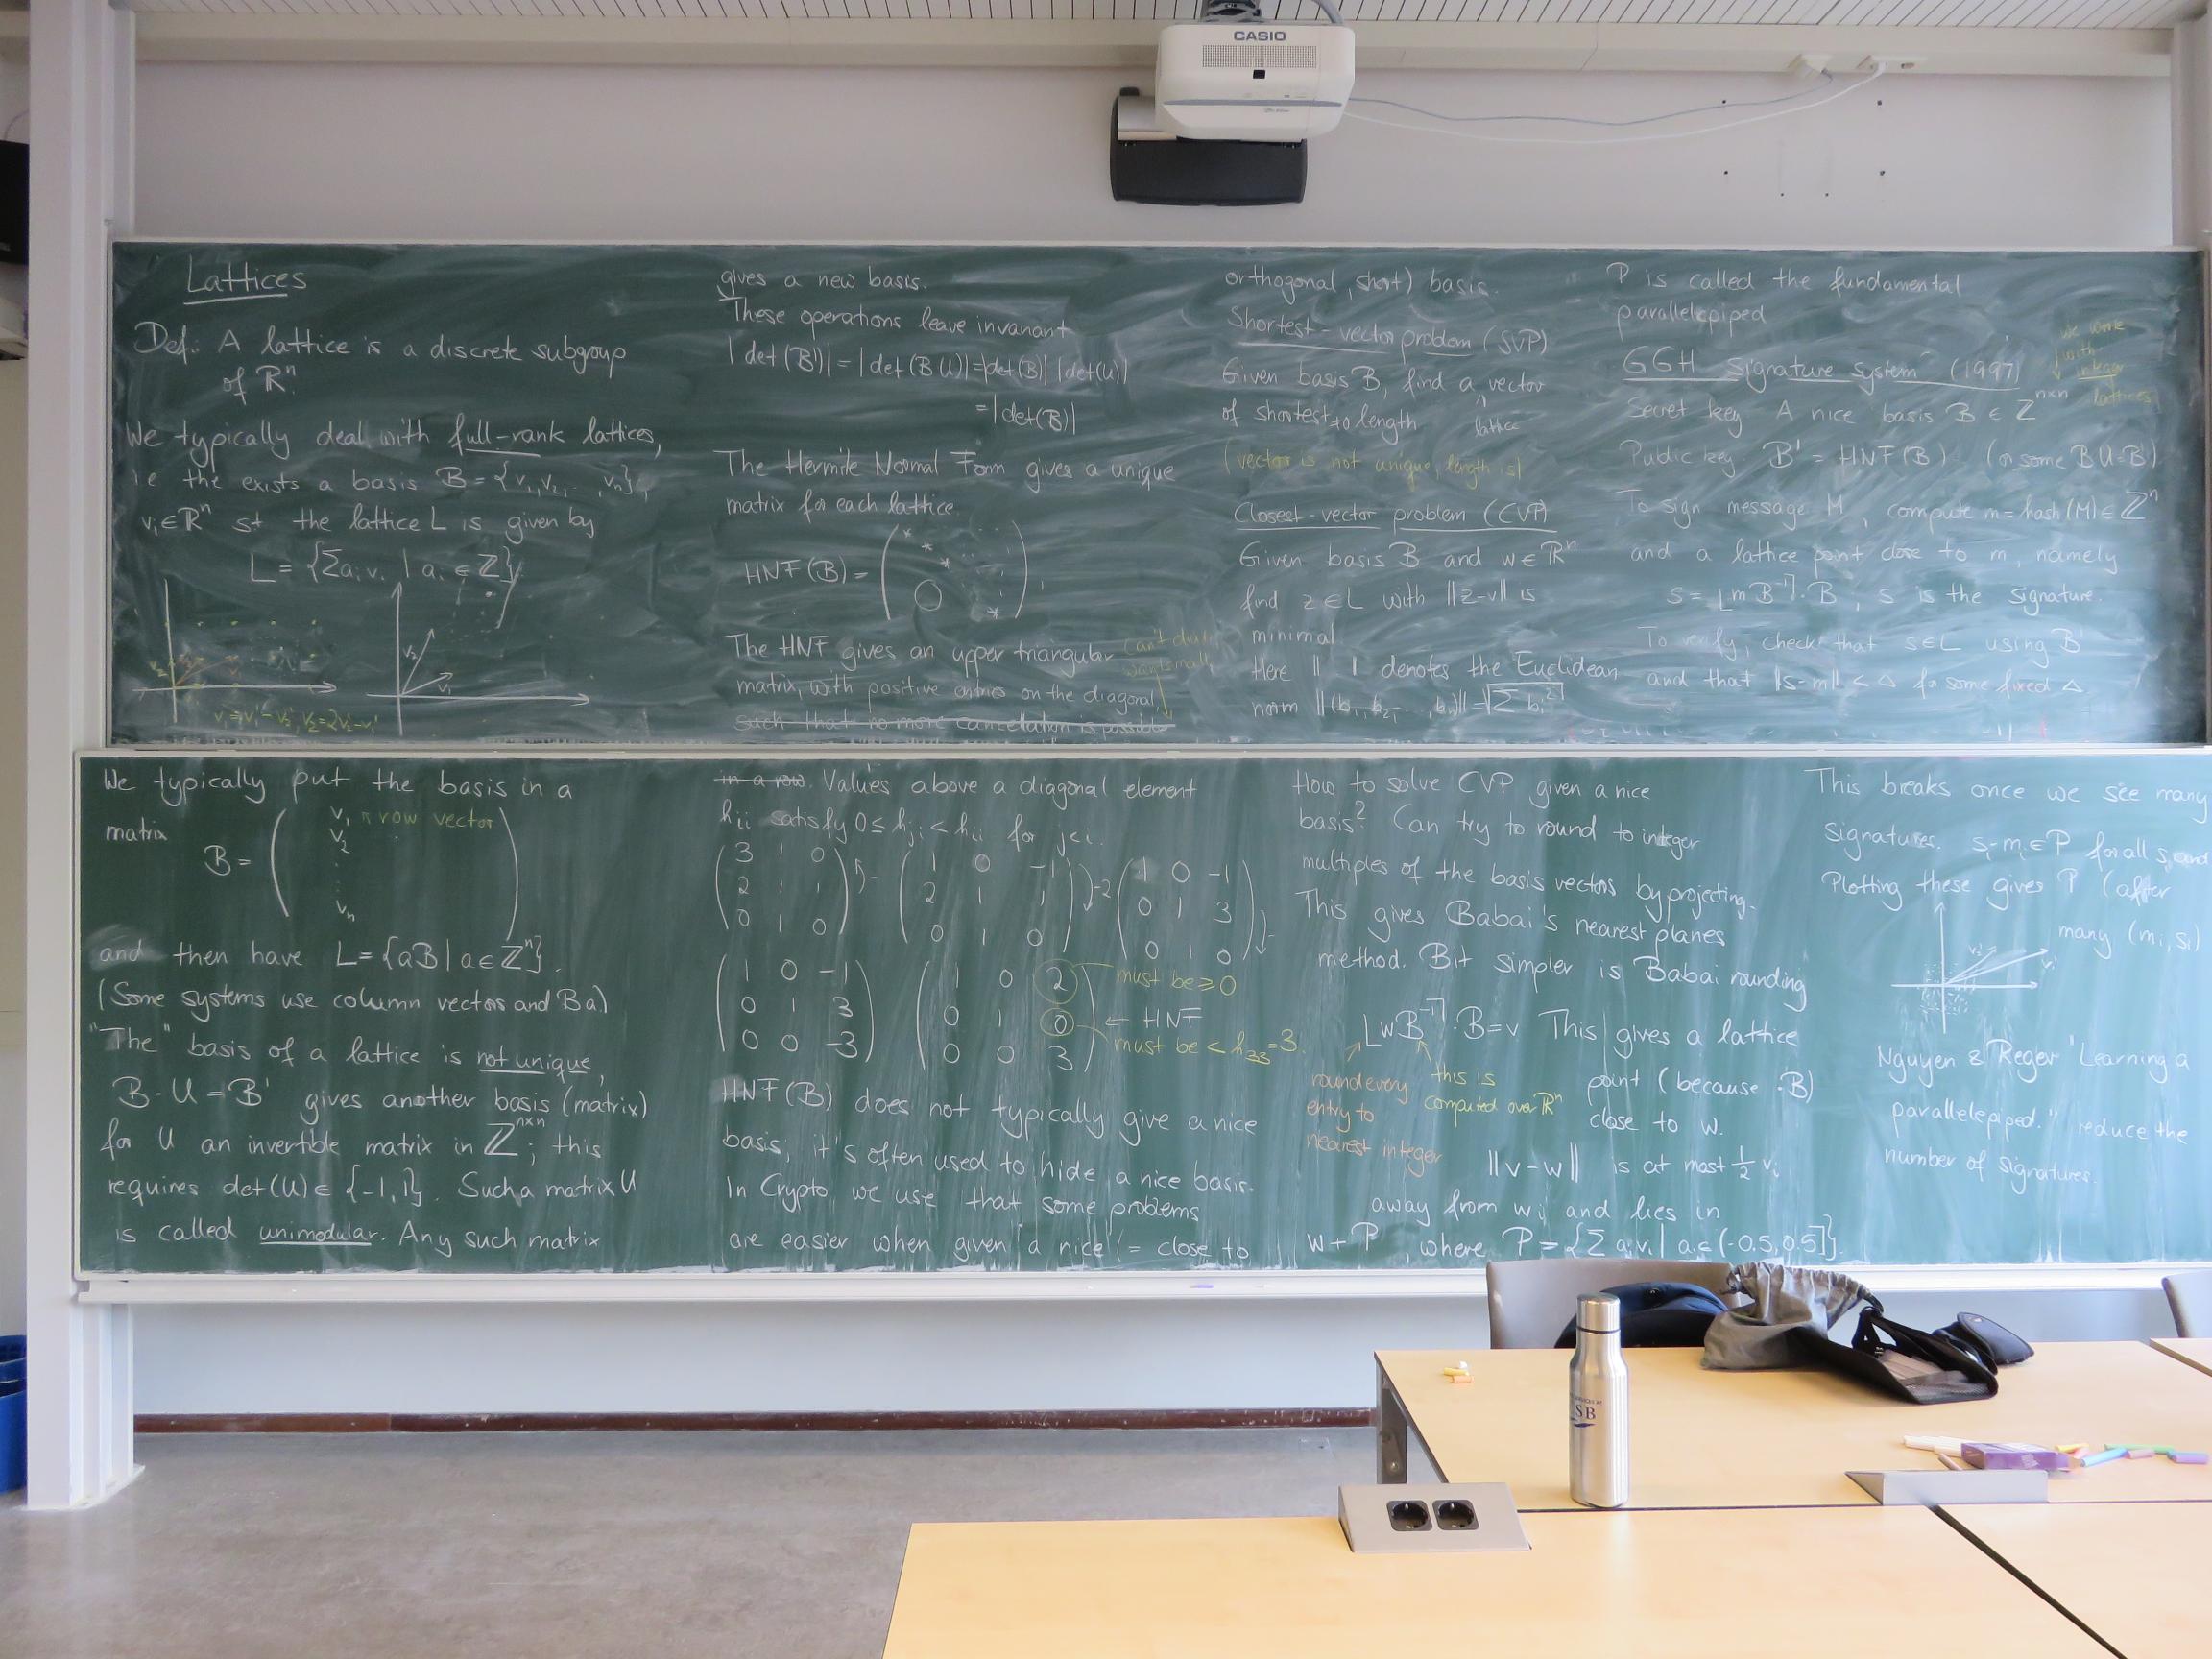 CASIO
Lattices
Def.: A lattice is a discrete subgroup
of ℝⁿ
We typically deal with full-rank lattices,
i.e the exists a basis B = {v₁, v₂, .. , vₙ},
vᵢ∈ℝⁿ st the lattice L is given by
L = {Σaᵢvᵢ | aᵢ ∈ ℤ}
v₂
v₁
v₁=v₁'-v₂', v₂=2v₂'-v₁'
We typically put the basis in a
matrix
B = ( v₁ ↖ row vector
v₂
:
vₙ )
and then have L={aB | a∈ℤⁿ}.
(Some systems use column vectors and Ba)
"The" basis of a lattice is not unique,
B·U = B' gives another basis (matrix)
for U an invertible matrix in ℤⁿˣⁿ; this
requires det(U)∈{-1,1}. Such a matrix U
is called unimodular. Any such matrix
gives a new basis.
These operations leave invariant
|det(B')| = |det(BU)| = |det(B)| |det(U)|
= |det(B)|
The Hermite Normal Form gives a unique
matrix for each lattice.
HNF(B) =
The HNF gives an upper triangular
matrix, with positive entries on the diagonal,
such that no more cancellation is possible
in a row. Values above a diagonal element
hᵢᵢ satisfy 0 ≤ hⱼᵢ < hᵢᵢ for j<i.
3 1 0   1 0 -1   1 0 -1
2 1 1   2 1 1   0 1 3
0 1 0   0 1 0   0 1 0
1 0 -1   1 0 2 must be ≥ 0
0 1 3   0 1 0 ← HNF
0 0 -3   0 0 3 must be < h₃₃ = 3.
HNF(B) does not typically give a nice
basis; it's often used to hide a nice basis.
In Crypto we use that some problems
are easier when given a nice (= close to
orthogonal, short) basis.
Shortest-vector problem (SVP)
Given basis B, find a lattice vector
of shortest ≠0 length
(vector is not unique, length is)
Closest-vector problem (CVP)
Given basis B and w∈ℝⁿ
find z∈L with ||z-v|| is
minimal.
Here || || denotes the Euclidean
norm ||(b₁, b₂, , bₙ)|| = √Σbᵢ²
How to solve CVP given a nice
basis? Can try to round to integer
multiples of the basis vectors by projecting.
This gives Babai's nearest planes
method. Bit simpler is Babai rounding
⌊wB⁻¹⌉·B = v This gives a lattice
point (because ·B)
close to w.
round every
entry to
nearest integer
this is
computed over ℝⁿ
||v-w|| is at most ½ vᵢ
away from w, and lies in
w + P, where P = {Σ aᵢvᵢ | aᵢ∈(-0.5, 0.5]}.
P is called the fundamental
parallelepiped
GGH "signature system" (1997)
we work
with
integer
lattices
Secret key A nice basis B ∈ ℤⁿˣⁿ
Public key B' = HNF(B) (or some BU=B')
To sign message M, compute m = hash(M)∈ℤⁿ
and a lattice point close to m, namely
s = ⌊mB⁻¹⌉·B; s is the signature.
To verify, check that s∈L using B'
and that ||s-m|| < Δ for some fixed Δ
This breaks once we see many
signatures. sᵢ-mᵢ∈P for all sᵢ and
Plotting these gives P (after
many (mᵢ,sᵢ)
v₂
v₁
Nguyen & Regev "Learning a
parallelepiped." reduce the
number of signatures.
SB